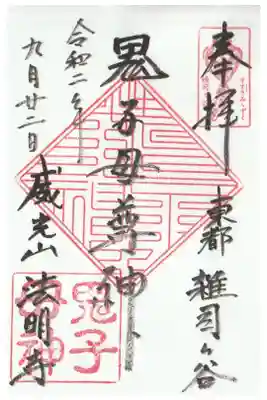 奉拝
東都 雑司ヶ谷
鬼子母尊神
令和二年
九月廿二日 威光山 法明寺
鬼子
母神